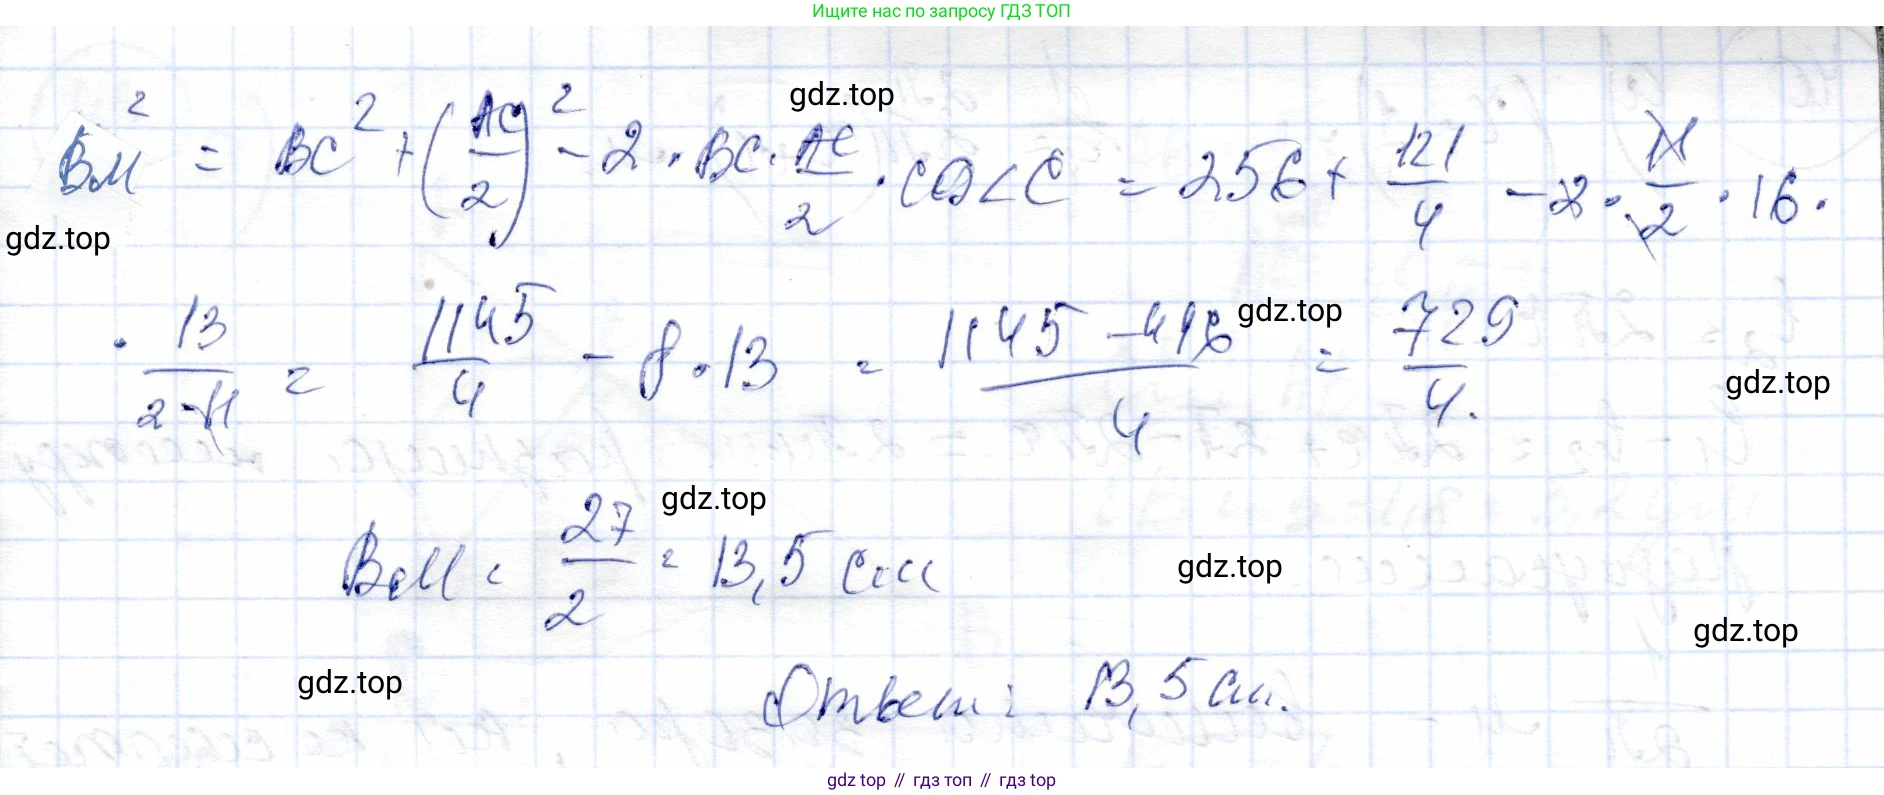 Ищите нас по запросу ГДЗ ТОП
gdz.top
BM² = BC² + (AC/2)² - 2 · BC · AC/2 · cos∠C = 256 + 121/4 - 2 · 11/2 · 16 ·
gdz.top
· 13/(2·11) = 1145/4 - 8 · 13 = (1145 - 416)/4 = 729/4.
gdz.top
gdz.top
gdz.top
BM = 27/2 = 13,5 см
gdz.top
gdz.top
gdz.top
Ответ: 13,5 см.
gdz top // гдз топ // гдз top